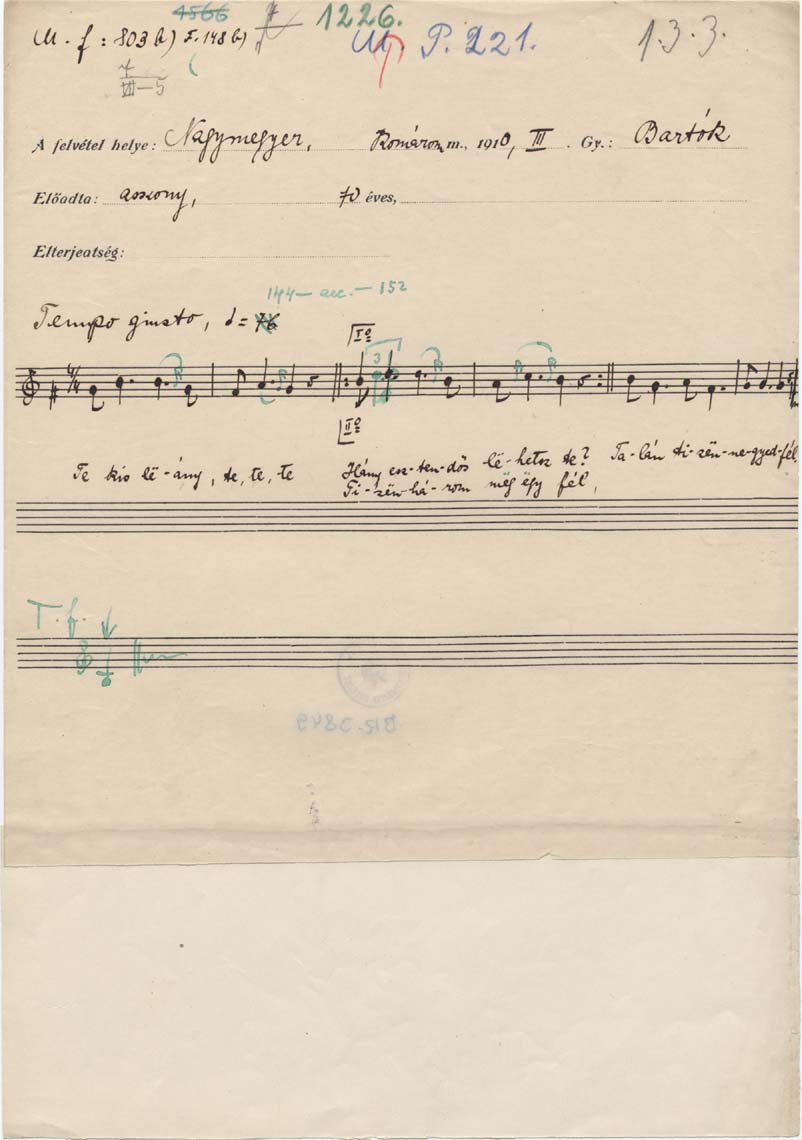 4566 1226.
M. f: 803 b) F. 148 b) M. P. 221. 13.3.
VII—5
A felvétel helye: Nagymegyer, Komárom m., 1910, III. Gy.: Bartók
Előadta: asszony, 70 éves,
Elterjedtség:
144 — acc. — 152
Tempo giusto, = 76
Iº
3
IIº
Te kis lë-ány, te, te, te Hány esz-ten-dős lë-hetsz te? Ta-lán ti-zën-ne-gyed-fél,
Ti-zën-há-rom még ëgy fél,
T. f.